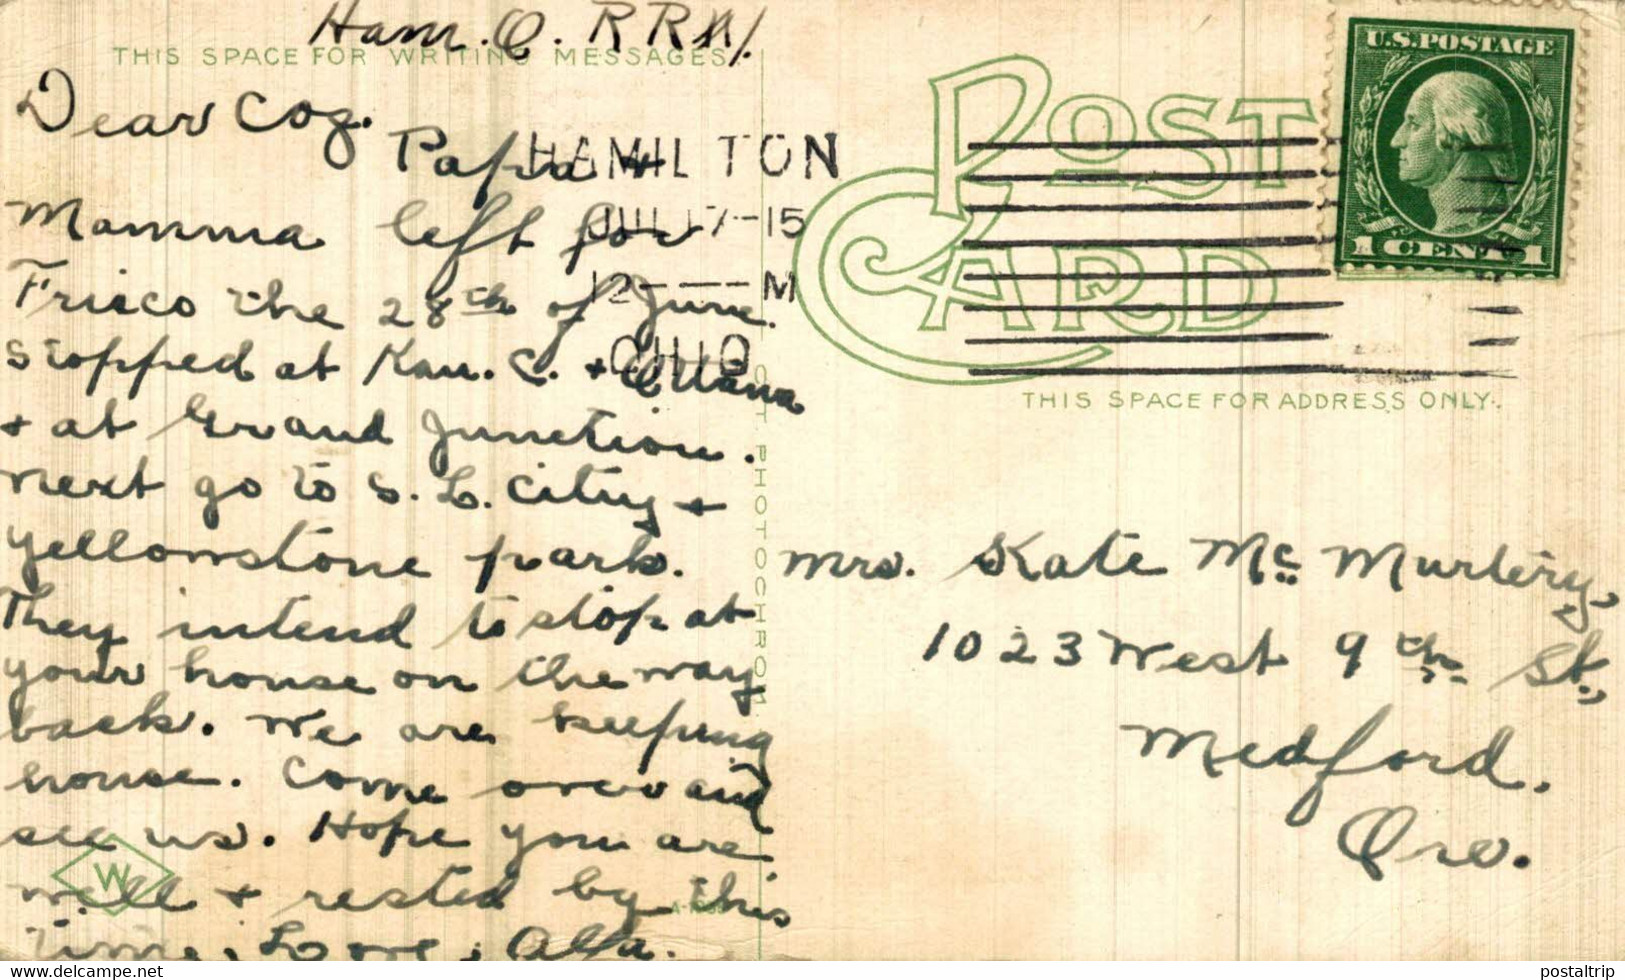 Ham. O. R R #1.
THIS SPACE FOR WRITING MESSAGES
Dear Coz.
Papa +
Mamma left for
Frisco the 28th of June.
Stopped at Kan. C. + Ottawa
+ at Grand Junction.
next go to S. L. City +
Yellowstone park.
They intend to stop at
your house on the way
back. We are keeping
house. Come over and
see us. Hope you are
well + rested by this
time. Love, Alla.
W
HAMILTON
JUL 17-15
12---M
OHIO
POST CARD
U.S. POSTAGE
1 CENT 1
THIS SPACE FOR ADDRESS ONLY.
Mrs. Kate Mc Murtery,
1023 West 9th St.,
Medford.
Ore.
PHOTOCHROM
hamahama1
postaltrip